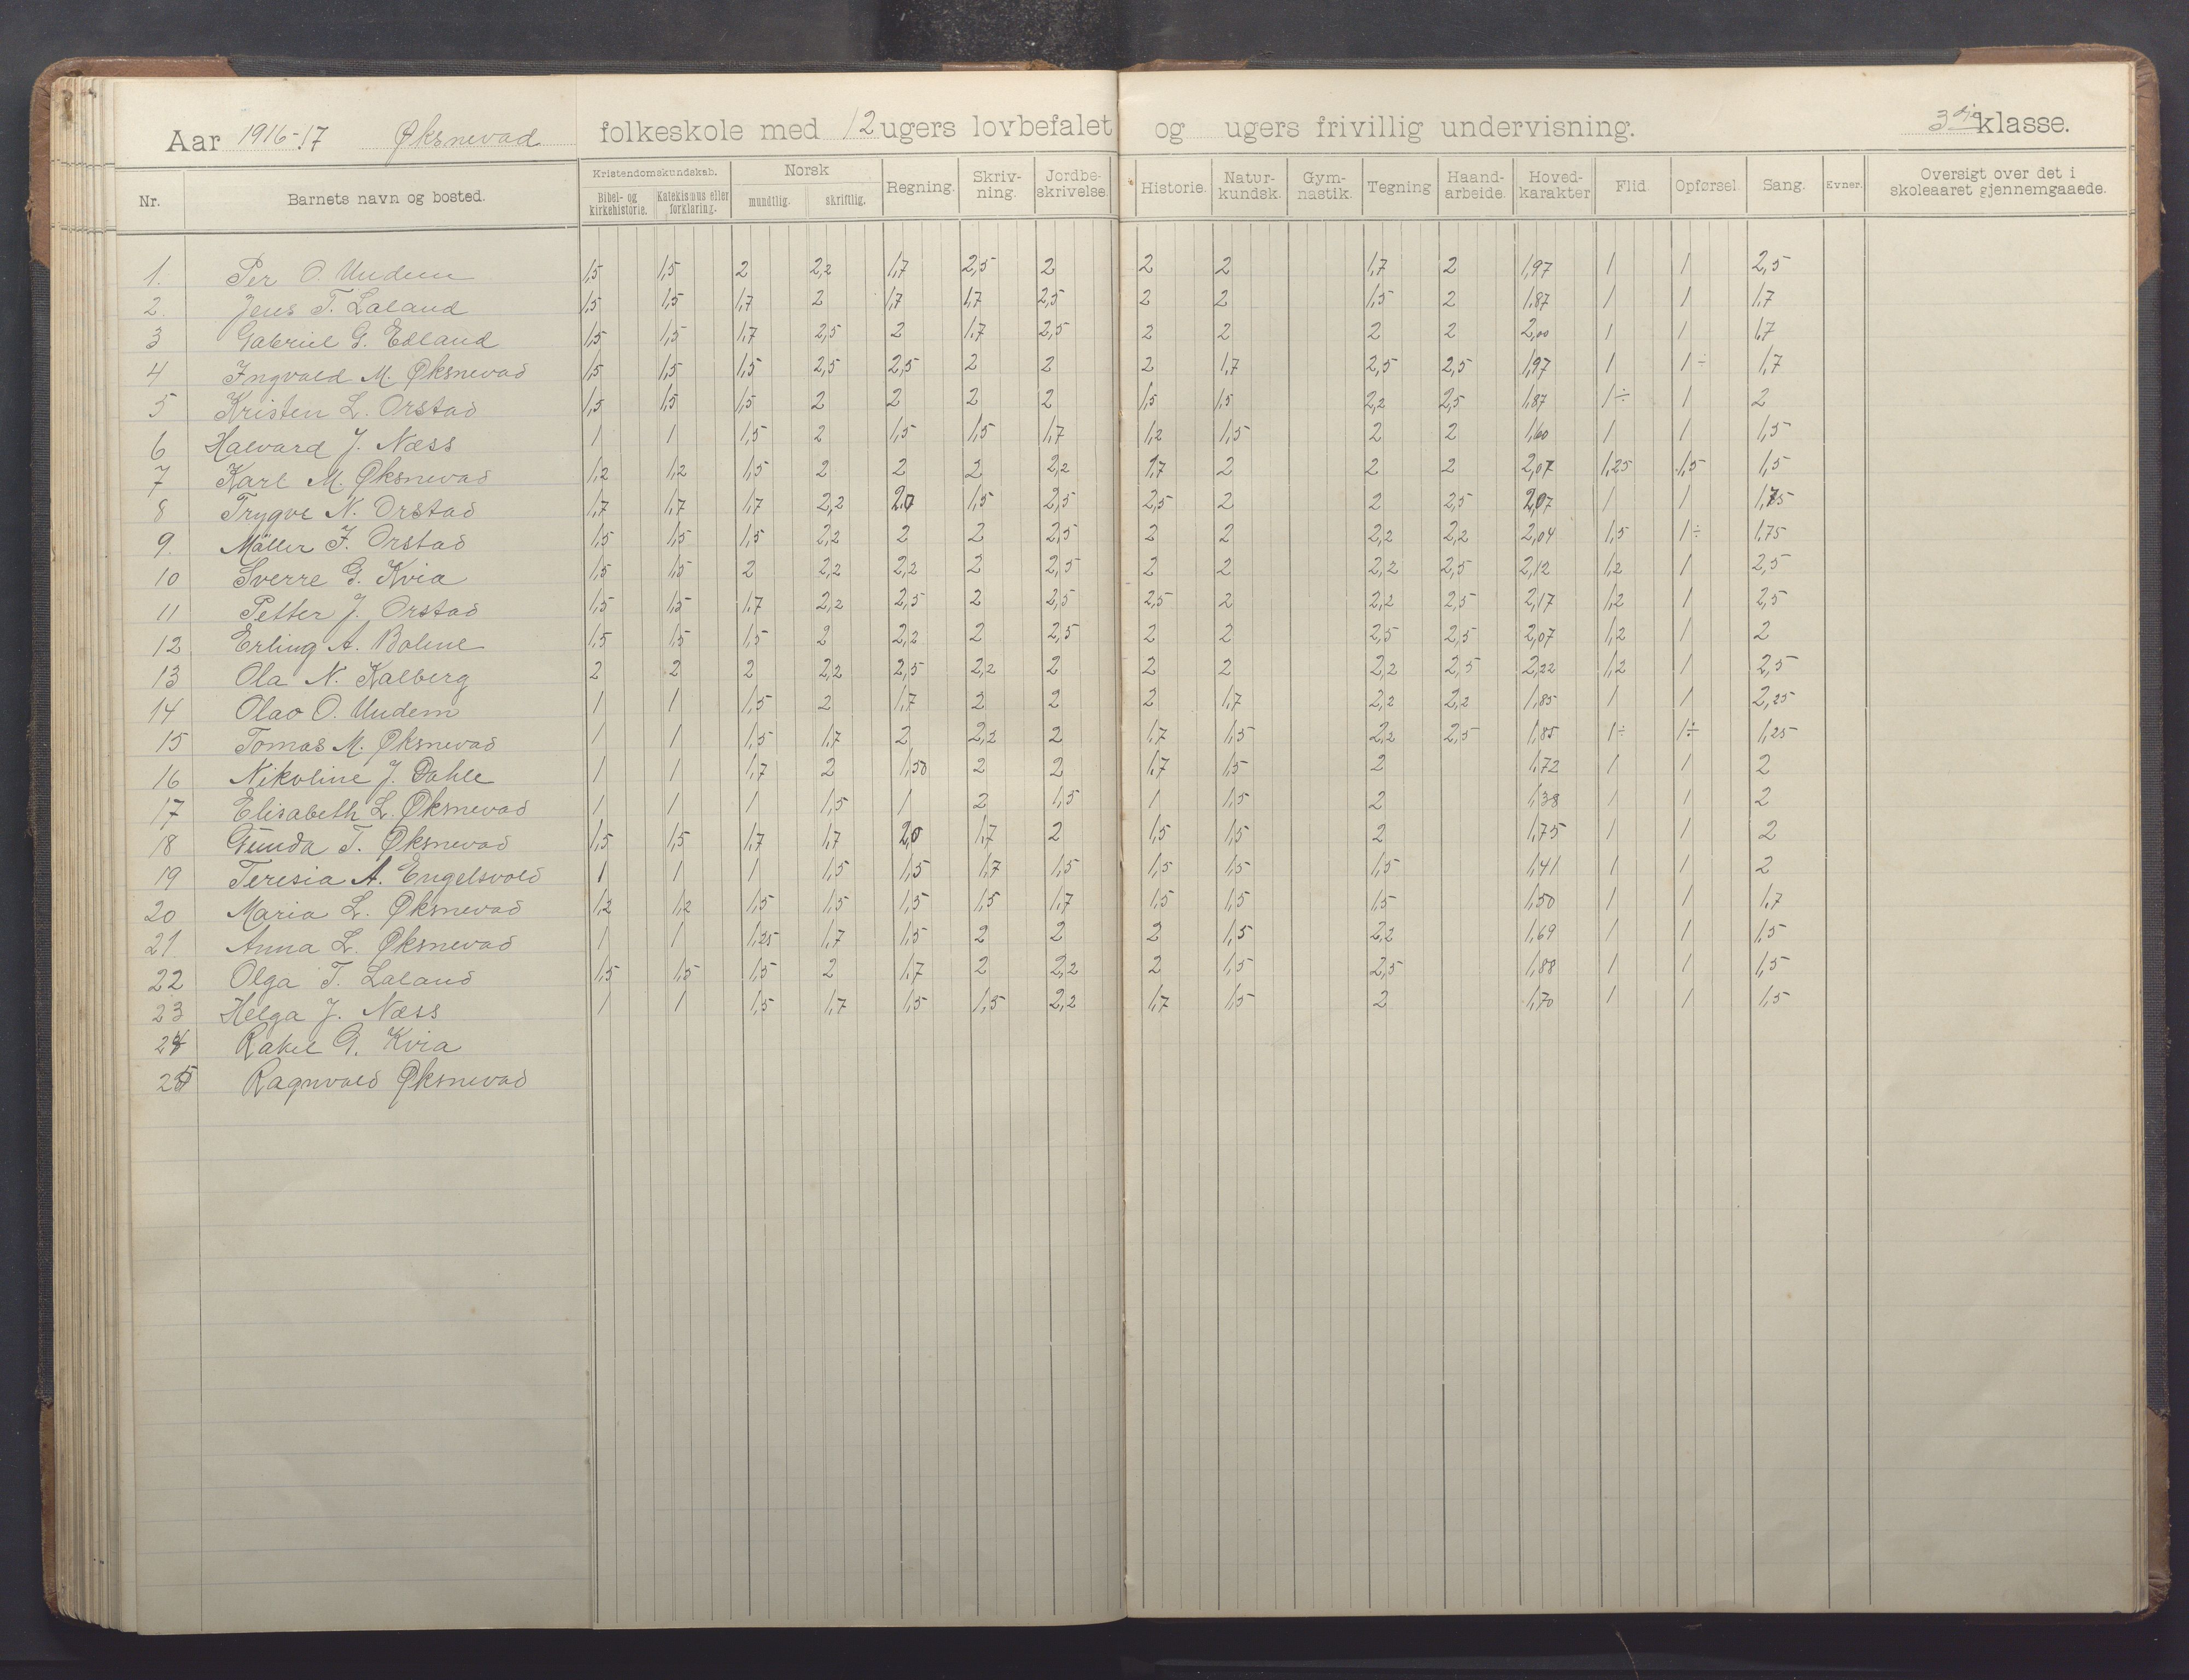 Aar 1916-17 Øksnevad folkeskole med 12 ugers lovbefalet og ugers frivillig undervisning. 3die klasse.
Nr. Barnets navn og bosted. Kristendomskundskab. Bibel- og kirkehistorie. Katekismus eller forklaring. Norsk mundtlig. skriftlig. Regning. Skriv-ning. Jordbe-skrivelse Historie. Natur-kundsk. Gym-nastik. Tegning Haand-arbeide. Hoved-karakter Flid. Opførsel Sang. Evner. Oversigt over det i skoleaaret gjennemgaaede.
1. Per O. Undem 1,5 1,5 2 2,2 1,7 2,5 2 2 2 1,7 2 1,97 1 1 2,5
2. Jens T. Laland 1,5 1,5 1,7 2 1,7 1,7 2,5 2 2 1,5 2 1,87 1 1 1,7
3 Gabriel G. Edland 1,5 1,5 1,7 2,5 2 1,7 2,5 2 2 2 2 2,00 1 1 1,7
4 Ingvald M. Øksnevad 1,5 1,5 1,5 2,5 2,5 2 2 2 1,7 2,5 2,5 1,97 1 1÷ 1,7
5 Kristen L. Orstad 1,5 1,5 1,5 2 2 2 2 1,5 1,5 2,2 2,5 1,87 1÷ 1 2
6 Halvard J. Næss 1 1 1,5 2 1,5 1,5 1,7 1,2 1,5 2 2 1,60 1 1 1,5
7 Karl M. Øksnevad 1,2 1,2 1,5 2 2 2 2,2 1,7 2 2 2 2,07 1,25 1,5 1,5
8 Trygve N. Orstad 1,7 1,7 1,7 2,2 2,0 1,5 2,5 2,5 2 2 2,5 2,07 1 1 1,75
9. Møller J. Orstad 1,5 1,5 1,5 2,2 2 2 2,5 2 2 2,2 2,2 2,04 1,5 1÷ 1,75
10 Sverre G. Kvia 1,5 1,5 2 2,2 2,2 2 2,5 2 2 2,2 2,5 2,12 1,2 1 2,5
11 Petter J. Orstad 1,5 1,5 1,7 2,2 2,5 2 2,5 2,5 2 2,2 2,5 2,17 1,2 1 2,5
12 Erling A. Bolme 1,5 1,5 1,5 2 2,2 2 2,5 2 2 2,5 2,5 2,07 1,2 1 2
13 Ola N. Kalberg 2 2 2 2,2 2,5 2,2 2 2 2 2,2 2,5 2,22 1,2 1 2,5
14 Olav O. Undem 1 1 1,5 2 1,7 2 2 2 1,7 2,2 2,2 1,85 1 1 2,25
15 Tomas M. Øksnevad 1 1 1,5 1,7 2 2,2 2 1,7 1,5 2,2 2,5 1,85 1÷ 1÷ 1,25
16 Nikoline J. Dahle 1 1 1,7 2 1,50 2 2 1,7 1,5 2 1,72 1 1 2
17 Elisabeth L. Øksnevad 1 1 1 1,5 1 2 1,5 1 1,5 2 1,38 1 1 2
18 Gunda T. Øksnevad 1,5 1,5 1,7 1,7 2,0 1,7 2 1,5 1,5 2 1,75 1 1 2
19 Teresia A. Engelsvold 1 1 1 1,5 1,5 1,7 1,5 1,5 1,5 1,5 1,41 1 1 2
20 Maria L. Øksnevad 1,2 1,2 1,5 1,5 1,5 1,5 1,7 1,5 1,5 1,5 1,50 1 1 1,7
21 Anna L. Øksnevad 1 1 1,25 1,7 1,5 2 2 2 1,5 2,2 1,69 1 1 1,5
22 Olga T. Laland 1,5 1,5 1,5 2 1,7 2 2,2 2 1,5 2,5 1,88 1 1 1,5
23 Helga J. Næss 1 1 1,5 1,7 1,5 1,5 2,2 1,7 1,5 2 1,70 1 1 1,5
24 Rakel G. Kvia
25 Ragnvald Øksnevad